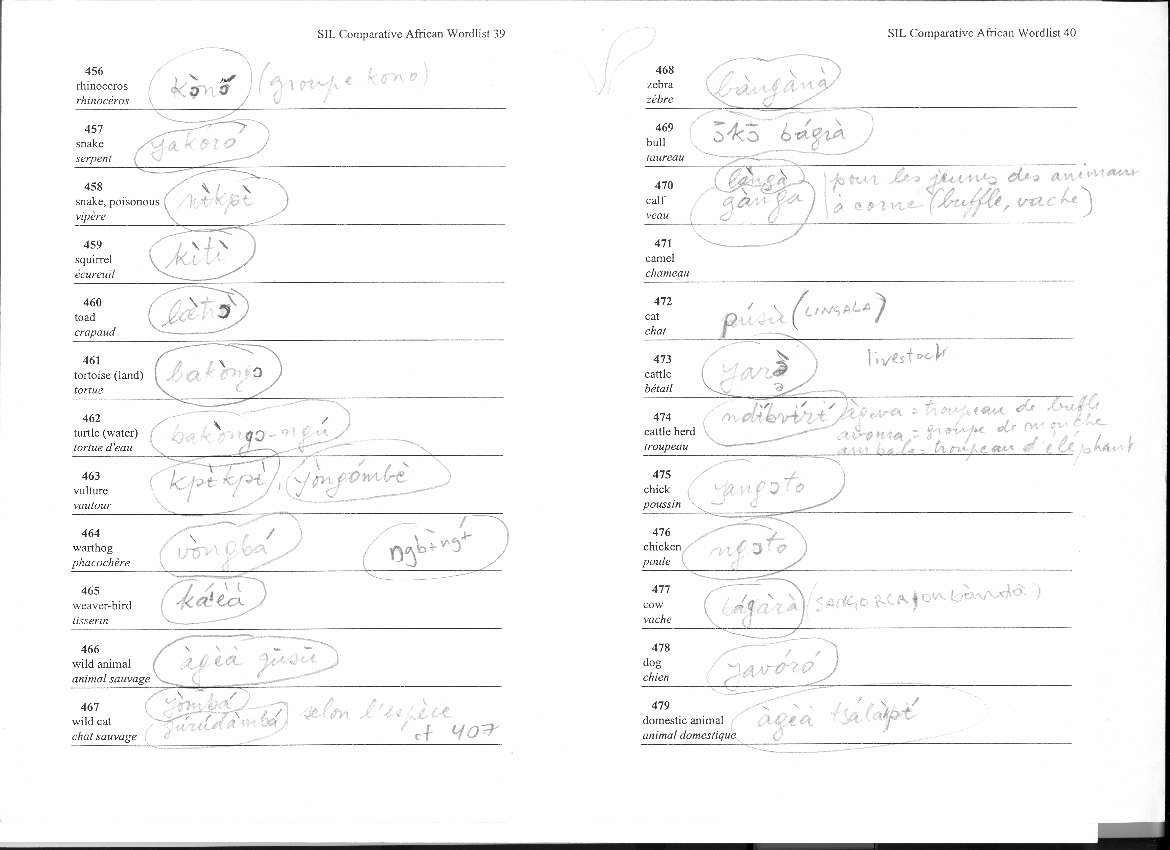 SIL Comparative African Wordlist 39
456
rhinoceros kɔ̀nɔ̋ (groupe kono)
rhinocéros
457
snake yakóró
serpent
458
snake, poisonous
vipère
459
squirrel kìtì
écureuil
460
toad
crapaud
461
tortoise (land) bakòngɔ
tortue
462
turtle (water) bakòngɔ-ngú
tortue d'eau
463
vulture yòngómbè
vautour
464
warthog vòngbá ngbɨ̀ngɨ́
phacochère
465
weaver-bird
tisserin
466
wild animal àgèà gūsū
animal sauvage
467 yòmbá
wild cat selon l'espèce
chat sauvage cf 407
SIL Comparative African Wordlist 40
468
zebra bàngànà
zèbre
469
bull ɔ̄kɔ̄ bágrà
taureau
470 làngà pour les jeunes des animaux
calf gànga à corne (buffle, vache)
veau
471
camel
chameau
472
cat púsù (LINGALA)
chat
473 livestock
cattle
bétail
474 àgwa = troupeau de bufle
cattle herd avoma = groupe de mouche
troupeau ambala = troupeau d'éléphant
475
chick yangɔto
poussin
476
chicken ngɔ́to
poule
477
cow bágàrà (SANGO RCA
vache
478
dog yavóró
chien
479
domestic animal àgèà
animal domestique